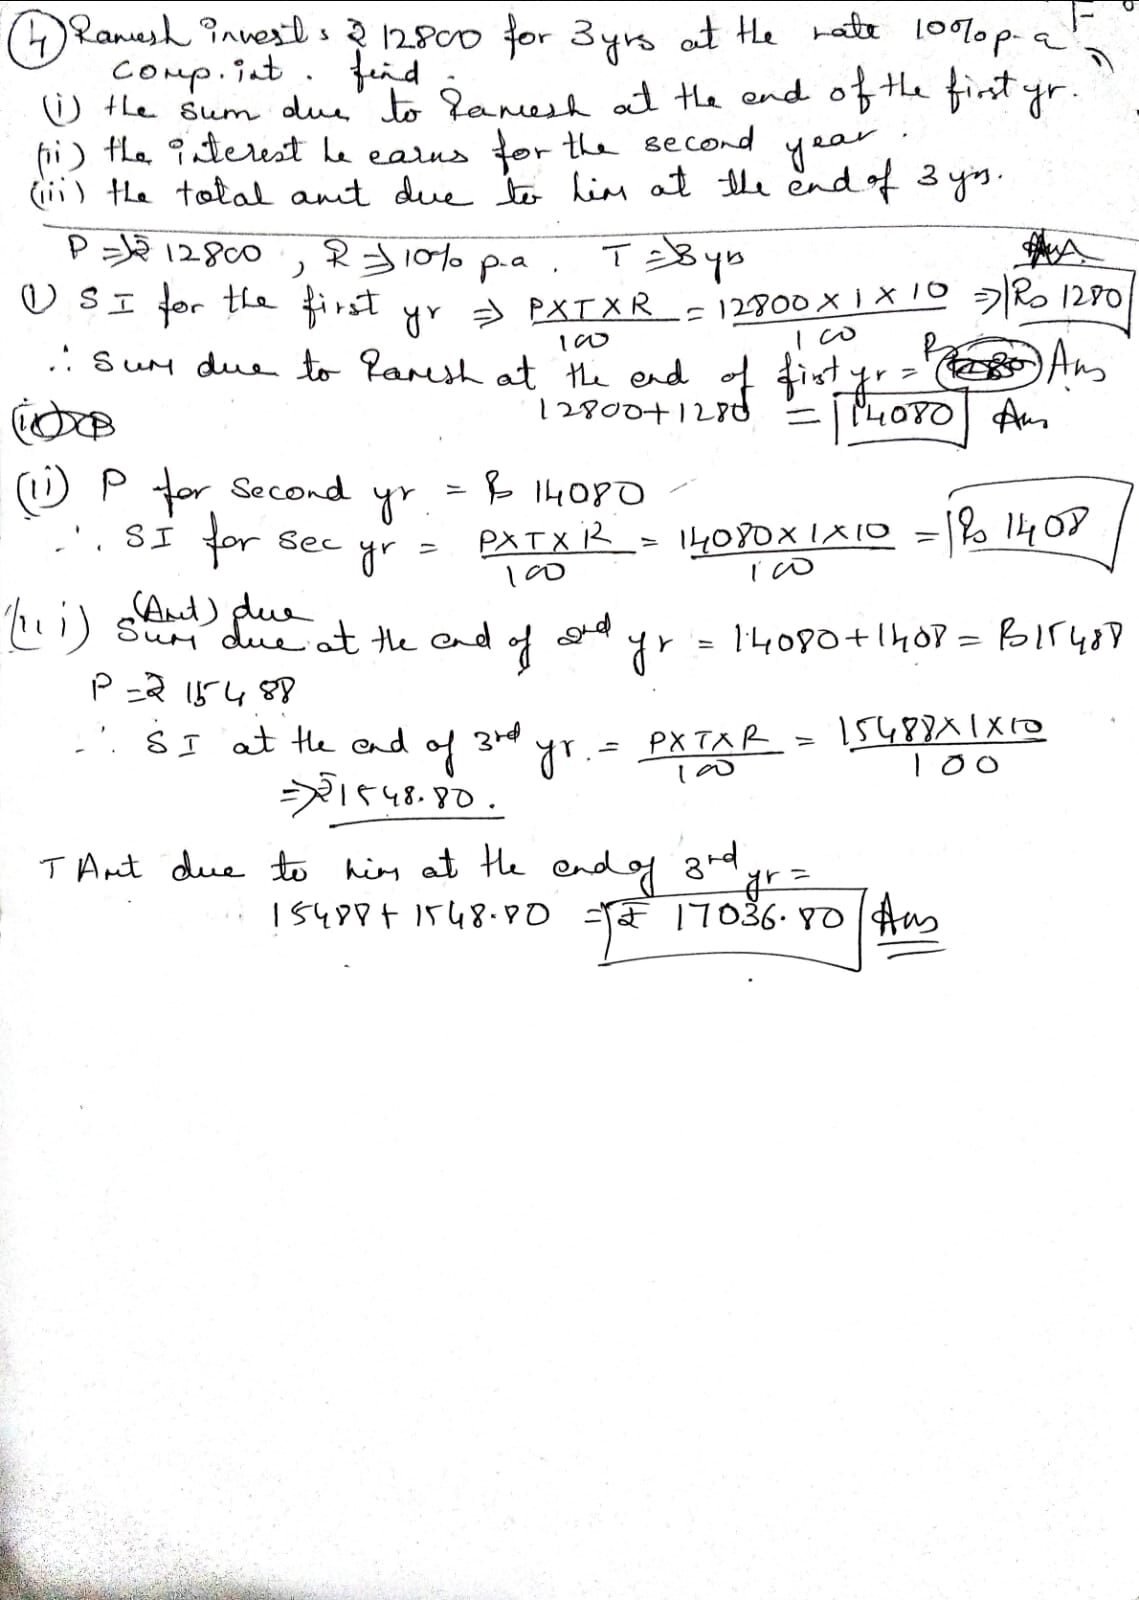 4) Ramesh invests ₹ 12800 for 3 yrs at the rate 10% p.a
comp. int. find :
(i) the sum due to Ramesh at the end of the first yr.
(ii) the interest he earns for the second year.
(iii) the total amt due to him at the end of 3 yrs.
P ⇒ ₹ 12800, R ⇒ 10% p.a. T ⇒ 3 yrs
(i) S I for the first yr ⇒ PXTXR/100 = 12800 X 1 X 10/100 ⇒ Rs 1280
∴ Sum due to Ramesh at the end of first yr = Ans
12800+1280 = 14080 Ans
(ii) P for second yr = Rs 14080
∴ SI for sec yr = PXTXR/100 = 14080X1X10/100 = Rs 1408
(iii) Sum (Amt) due due at the end of 2nd yr = 14080+1408 = Rs 15488
P = ₹ 15488
∴ SI at the end of 3rd yr. = PXTXR/100 = 15488X1X10/100
⇒ ₹1548.80.
T Amt due to him at the end of 3rd yr =
15488+1548.80 = ₹ 17036.80 Ans